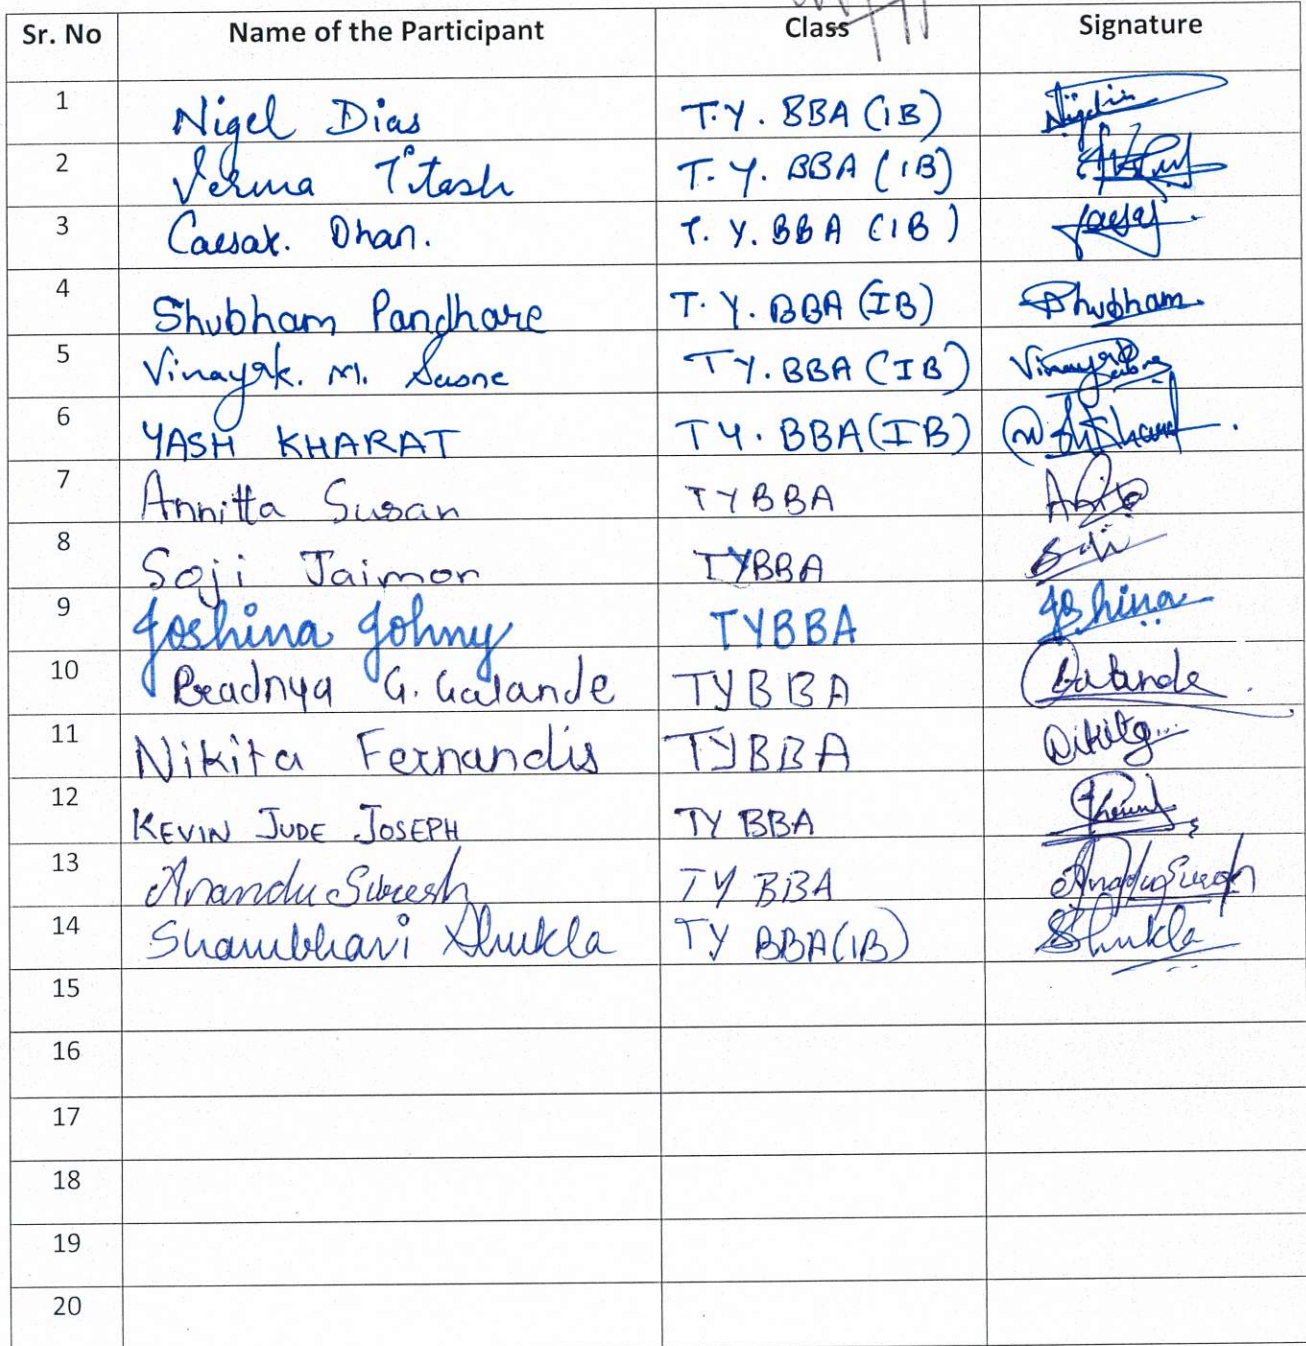 Sr. No Name of the Participant Class Signature
1 Nigel Dias T.Y. BBA (IB)
2 Verma Titash T.Y. BBA (IB)
3 Caesar. Dhan. T.Y. BBA (IB)
4 Shubham Pandhare T.Y. BBA (IB) Shubham
5 Vinayak. M. TY. BBA (IB)
6 YASH KHARAT TY. BBA (IB)
7 Annitta Susan TYBBA
8 Saji Jaimon TYBBA
9 Joshina Johny TYBBA Joshina
10 Pradnya G. Galande TYBBA Galande
11 Nikita Fernandis TYBBA Nikita
12 KEVIN JUDE JOSEPH TY BBA
13 Anandu Suresh TY BBA
14 Shambhavi Shukla TY BBA (IB) Shukla
15
16
17
18
19
20